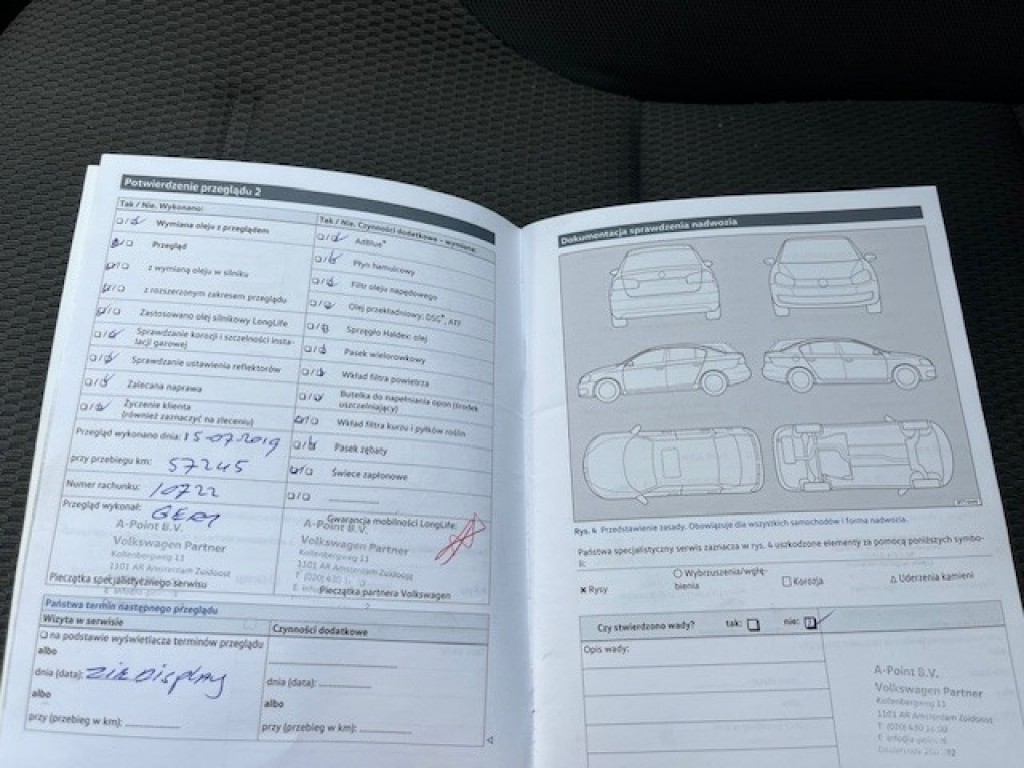 Potwierdzenie przeglądu 2
Tak / Nie. Wykonano:
Wymiana oleju z przeglądem
Przegląd
z wymianą oleju w silniku
z rozszerzonym zakresem przeglądu
Zastosowano olej silnikowy LongLife
Sprawdzanie korozji i szczelności insta-
lacji gazowej
Sprawdzanie ustawienia reflektorów
Zalecana naprawa
Życzenie klienta
(również zaznaczyć na zleceniu)
Przegląd wykonano dnia: 15-07-2019
przy przebiegu km: 57245
Numer rachunku: 10722
Przegląd wykonał: GERY
A-Point B.V.
Volkswagen Partner
Kollenbergweg 11
1101 AR Amsterdam Zuidoost
Pieczątka specjalistycznego serwisu
Tak / Nie. Czynności dodatkowe – wymiana:
AdBlue®
Płyn hamulcowy
Filtr oleju napędowego
Olej przekładniowy: DSG®, ATF
Sprzęgło Haldex: olej
Pasek wielorowkowy
Wkład filtra powietrza
Butelka do napełniania opon (środek
uszczelniający)
Wkład filtra kurzu i pyłków roślin
Pasek zębaty
Świece zapłonowe
Gwarancja mobilności LongLife:
A-Point B.V.
Volkswagen Partner
Kollenbergweg 11
1101 AR Amsterdam Zuidoost
T: (020) 430
Pieczątka partnera Volkswagen
Państwa termin następnego przeglądu
Wizyta w serwisie
na podstawie wyświetlacza terminów przeglądu
albo
dnia (data): ZIE DISPLAY
albo
przy (przebieg w km):
Czynności dodatkowe
dnia (data):
albo
przy (przebieg w km):
Dokumentacja sprawdzenia nadwozia
Rys. 4 Przedstawienie zasady. Obowiązuje dla wszystkich samochodów i forma nadwozia.
Państwa specjalistyczny serwis zaznacza w rys. 4 uszkodzone elementy za pomocą poniższych symbo-
li:
x Rysy
Wybrzuszenia/wgłę-
bienia
Korozja
Uderzenia kamieni
Czy stwierdzono wady? tak: nie:
Opis wady:
A-Point B.V.
Volkswagen Partner
Kollenbergweg 11
1101 AR Amsterdam Zuidoost